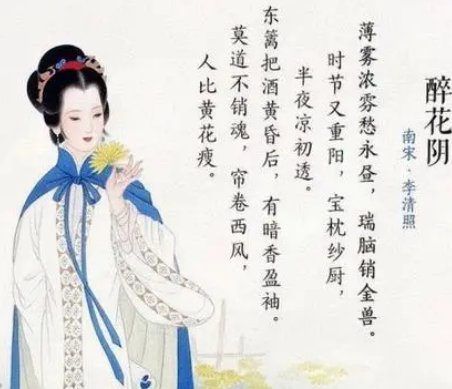 醉花阴
南宋·李清照
薄雾浓雰愁永昼，瑞脑销金兽。
时节又重阳，宝枕纱厨，
半夜凉初透。
东篱把酒黄昏后，有暗香盈袖。
莫道不销魂，帘卷西风，
人比黄花瘦。